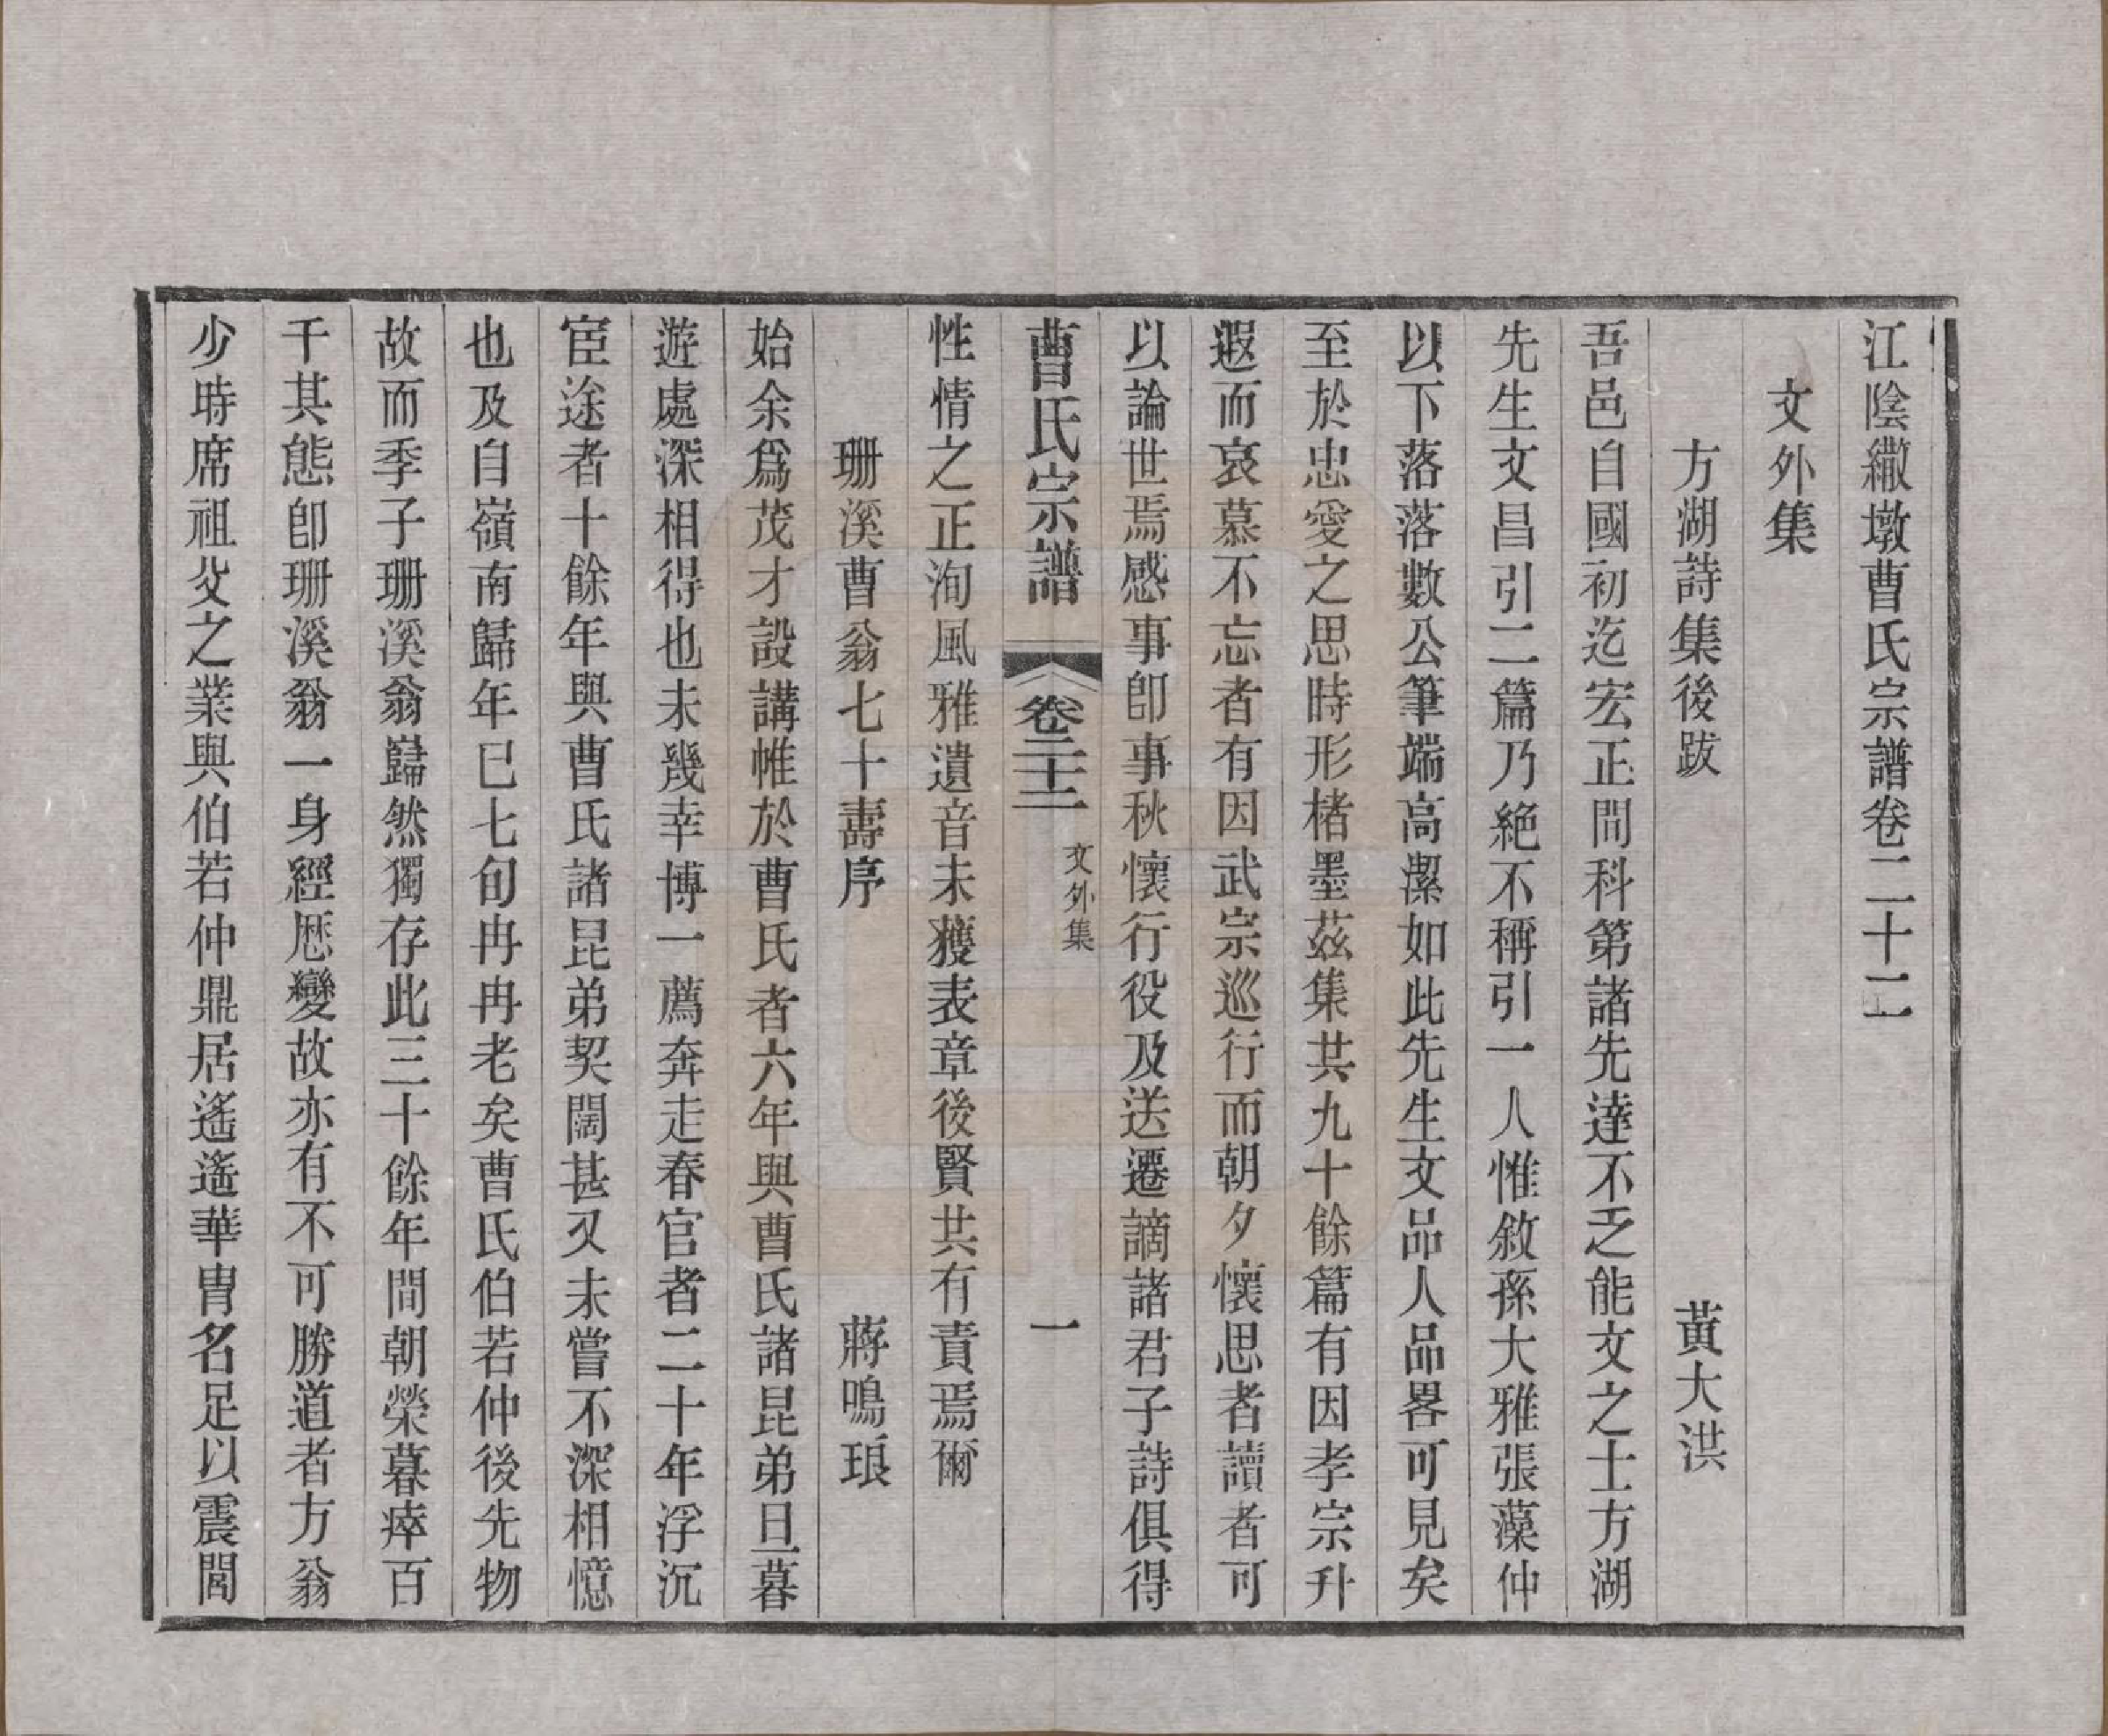 江陰繖墩曹氏宗譜卷二十二
文外集
方湖詩集後跋　黃大洪
吾邑自國初迄宏正間科第諸先達不乏能文之士方湖
先生文昌引二篇乃絶不稱引一人惟敘孫大雅張藻仲
以下落落數公筆端高潔如此先生文品人品畧可見矣
至於忠愛之思時形楮墨茲集共九十餘篇有因孝宗升
遐而哀慕不忘者有因武宗巡行而朝夕懷思者讀者可
以論世焉感事卽事秋懷行役及送遷謫諸君子詩俱得
曹氏宗譜　卷二十二　文外集　一
性情之正洵風雅遺音未獲表章後賢共有責焉爾
珊溪曹翁七十壽序　蔣鳴琅
始余爲茂才設講帷於曹氏者六年與曹氏諸昆弟旦暮
遊處深相得也未幾幸博一薦奔走春官者二十年浮沉
宦途者十餘年與曹氏諸昆弟契闊甚又未嘗不深相憶
也及自嶺南歸年已七旬冉冉老矣曹氏伯若仲後先物
故而季子珊溪翁巋然獨存此三十餘年間朝榮暮瘁百
千其態卽珊溪翁一身經歷變故亦有不可勝道者方翁
少時席祖父之業與伯若仲鼎居遙遙華胄名足以震閭